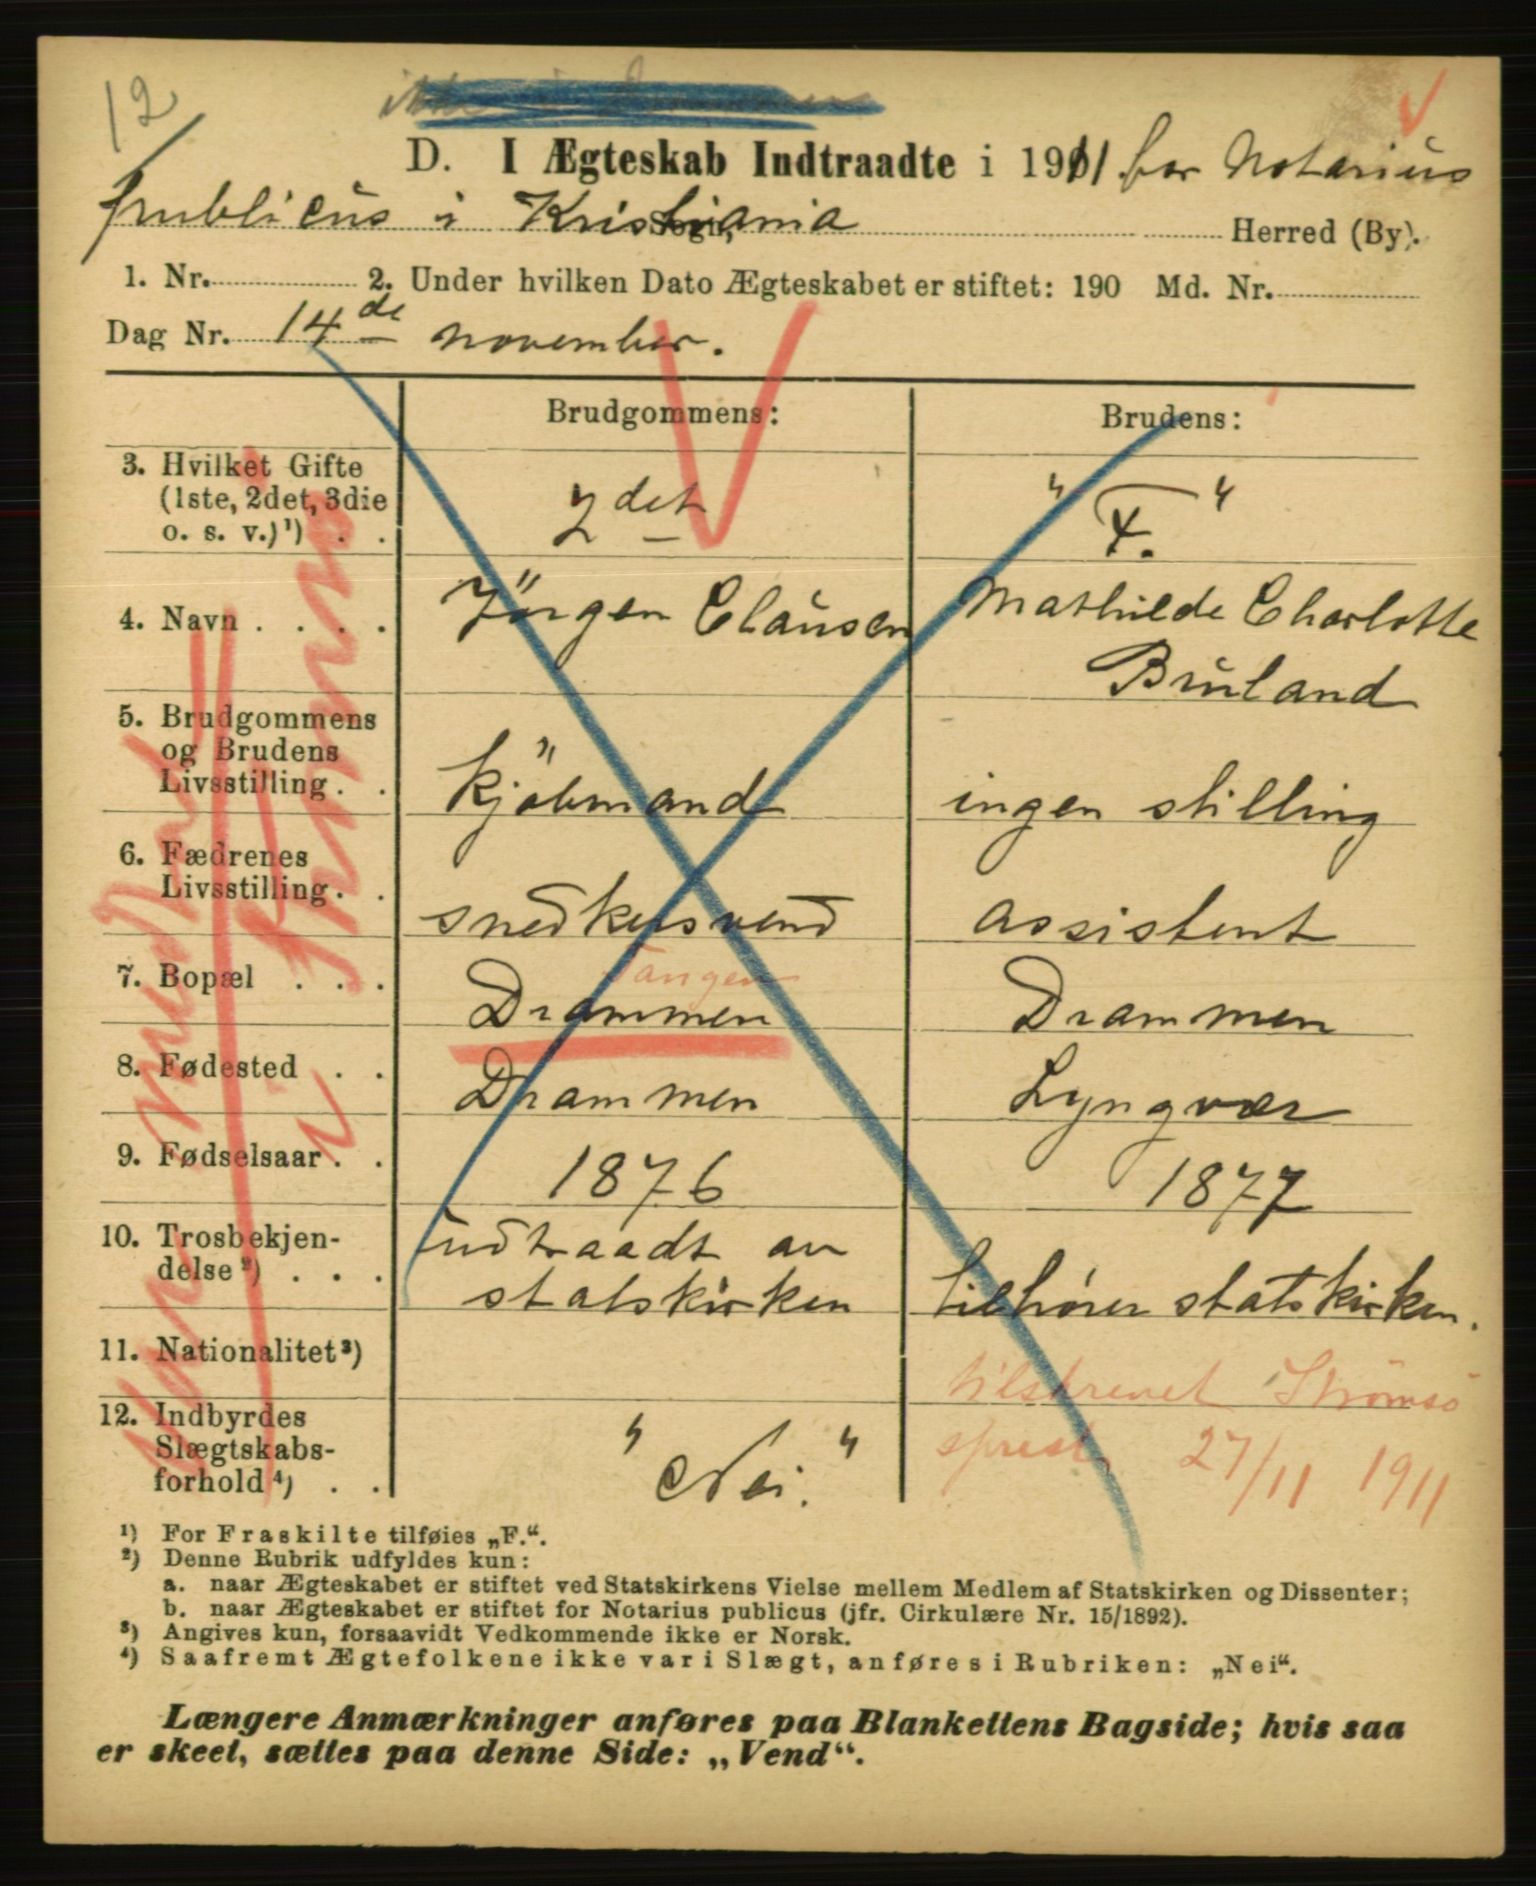 12
D. I Ægteskab Indtraadte i 1911 for Notarius
publicus i Kristiania Sogn, Herred (By).
1. Nr. 2. Under hvilken Dato Ægteskabet er stiftet: 190 Md. Nr.
Dag Nr. 14de november.
Brudgommens: Brudens:
3. Hvilket Gifte
(1ste, 2det, 3die
o. s. v.)¹) . .
2det
" F. "
4. Navn . . . .
Jörgen Clausen
Mathilde Charlotte
Bruland
5. Brudgommens
og Brudens
Livsstilling . .
kjöbmand
ingen stilling
6. Fædrenes
Livsstilling . .
snedkersvend
assistent
7. Bopæl . . .
Tangen
Drammen
Drammen
8. Fødested . .
Drammen
Lyngvær
9. Fødselsaar . .
1876
1877
10. Trosbekjen-
delse²) . . .
udtraadt av
statskirken
tilhører statskirken.
11. Nationalitet³)
tilskrevet Strømsø
12. Indbyrdes
Slægtskabs-
forhold⁴) . .
" Nei. "
27/11 1911
¹) For Fraskilte tilføies „F.“.
²) Denne Rubrik udfyldes kun:
a. naar Ægteskabet er stiftet ved Statskirkens Vielse mellem Medlem af Statskirken og Dissenter;
b. naar Ægteskabet er stiftet for Notarius publicus (jfr. Cirkulære Nr. 15/1892).
³) Angives kun, forsaavidt Vedkommende ikke er Norsk.
⁴) Saafremt Ægtefolkene ikke var i Slægt, anføres i Rubriken: „Nei“.
Længere Anmærkninger anføres paa Blankettens Bagside; hvis saa
er skeet, sættes paa denne Side: „Vend“.